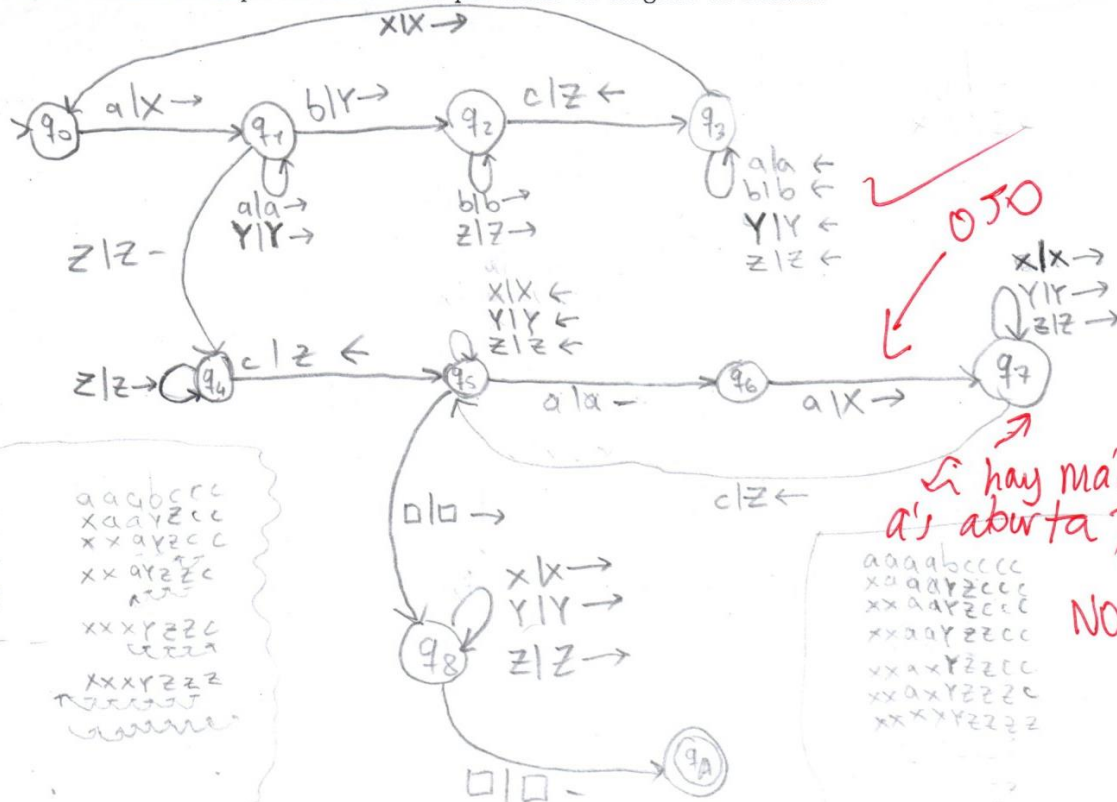 X|X →
a|X →
b|Y →
c|Z ←
q0
q1
q2
q3
a|a →
Y|Y →
b|b →
z|Z →
a|a ←
b|b ←
Y|Y ←
z|Z ←
OJO
Z|Z -
X|X ←
Y|Y ←
z|Z ←
X|X →
Y|Y →
z|Z →
Z|z →
q4
c|z ←
q5
a|a -
q6
a|X →
q7
c|Z ←
Si hay
a's aborta
NO
□|□ →
aaabccc
xaayzcc
xxayzcc
xxayzzc
xxxyzzc
xxxyzzz
aaaabcccc
xaaayzccc
xxaayzccc
xxaayzzcc
xxaxyzzcc
xxaxyzzzc
xxxxyzzzz
q8
X|X →
Y|Y →
Z|Z →
qA
□|□ -